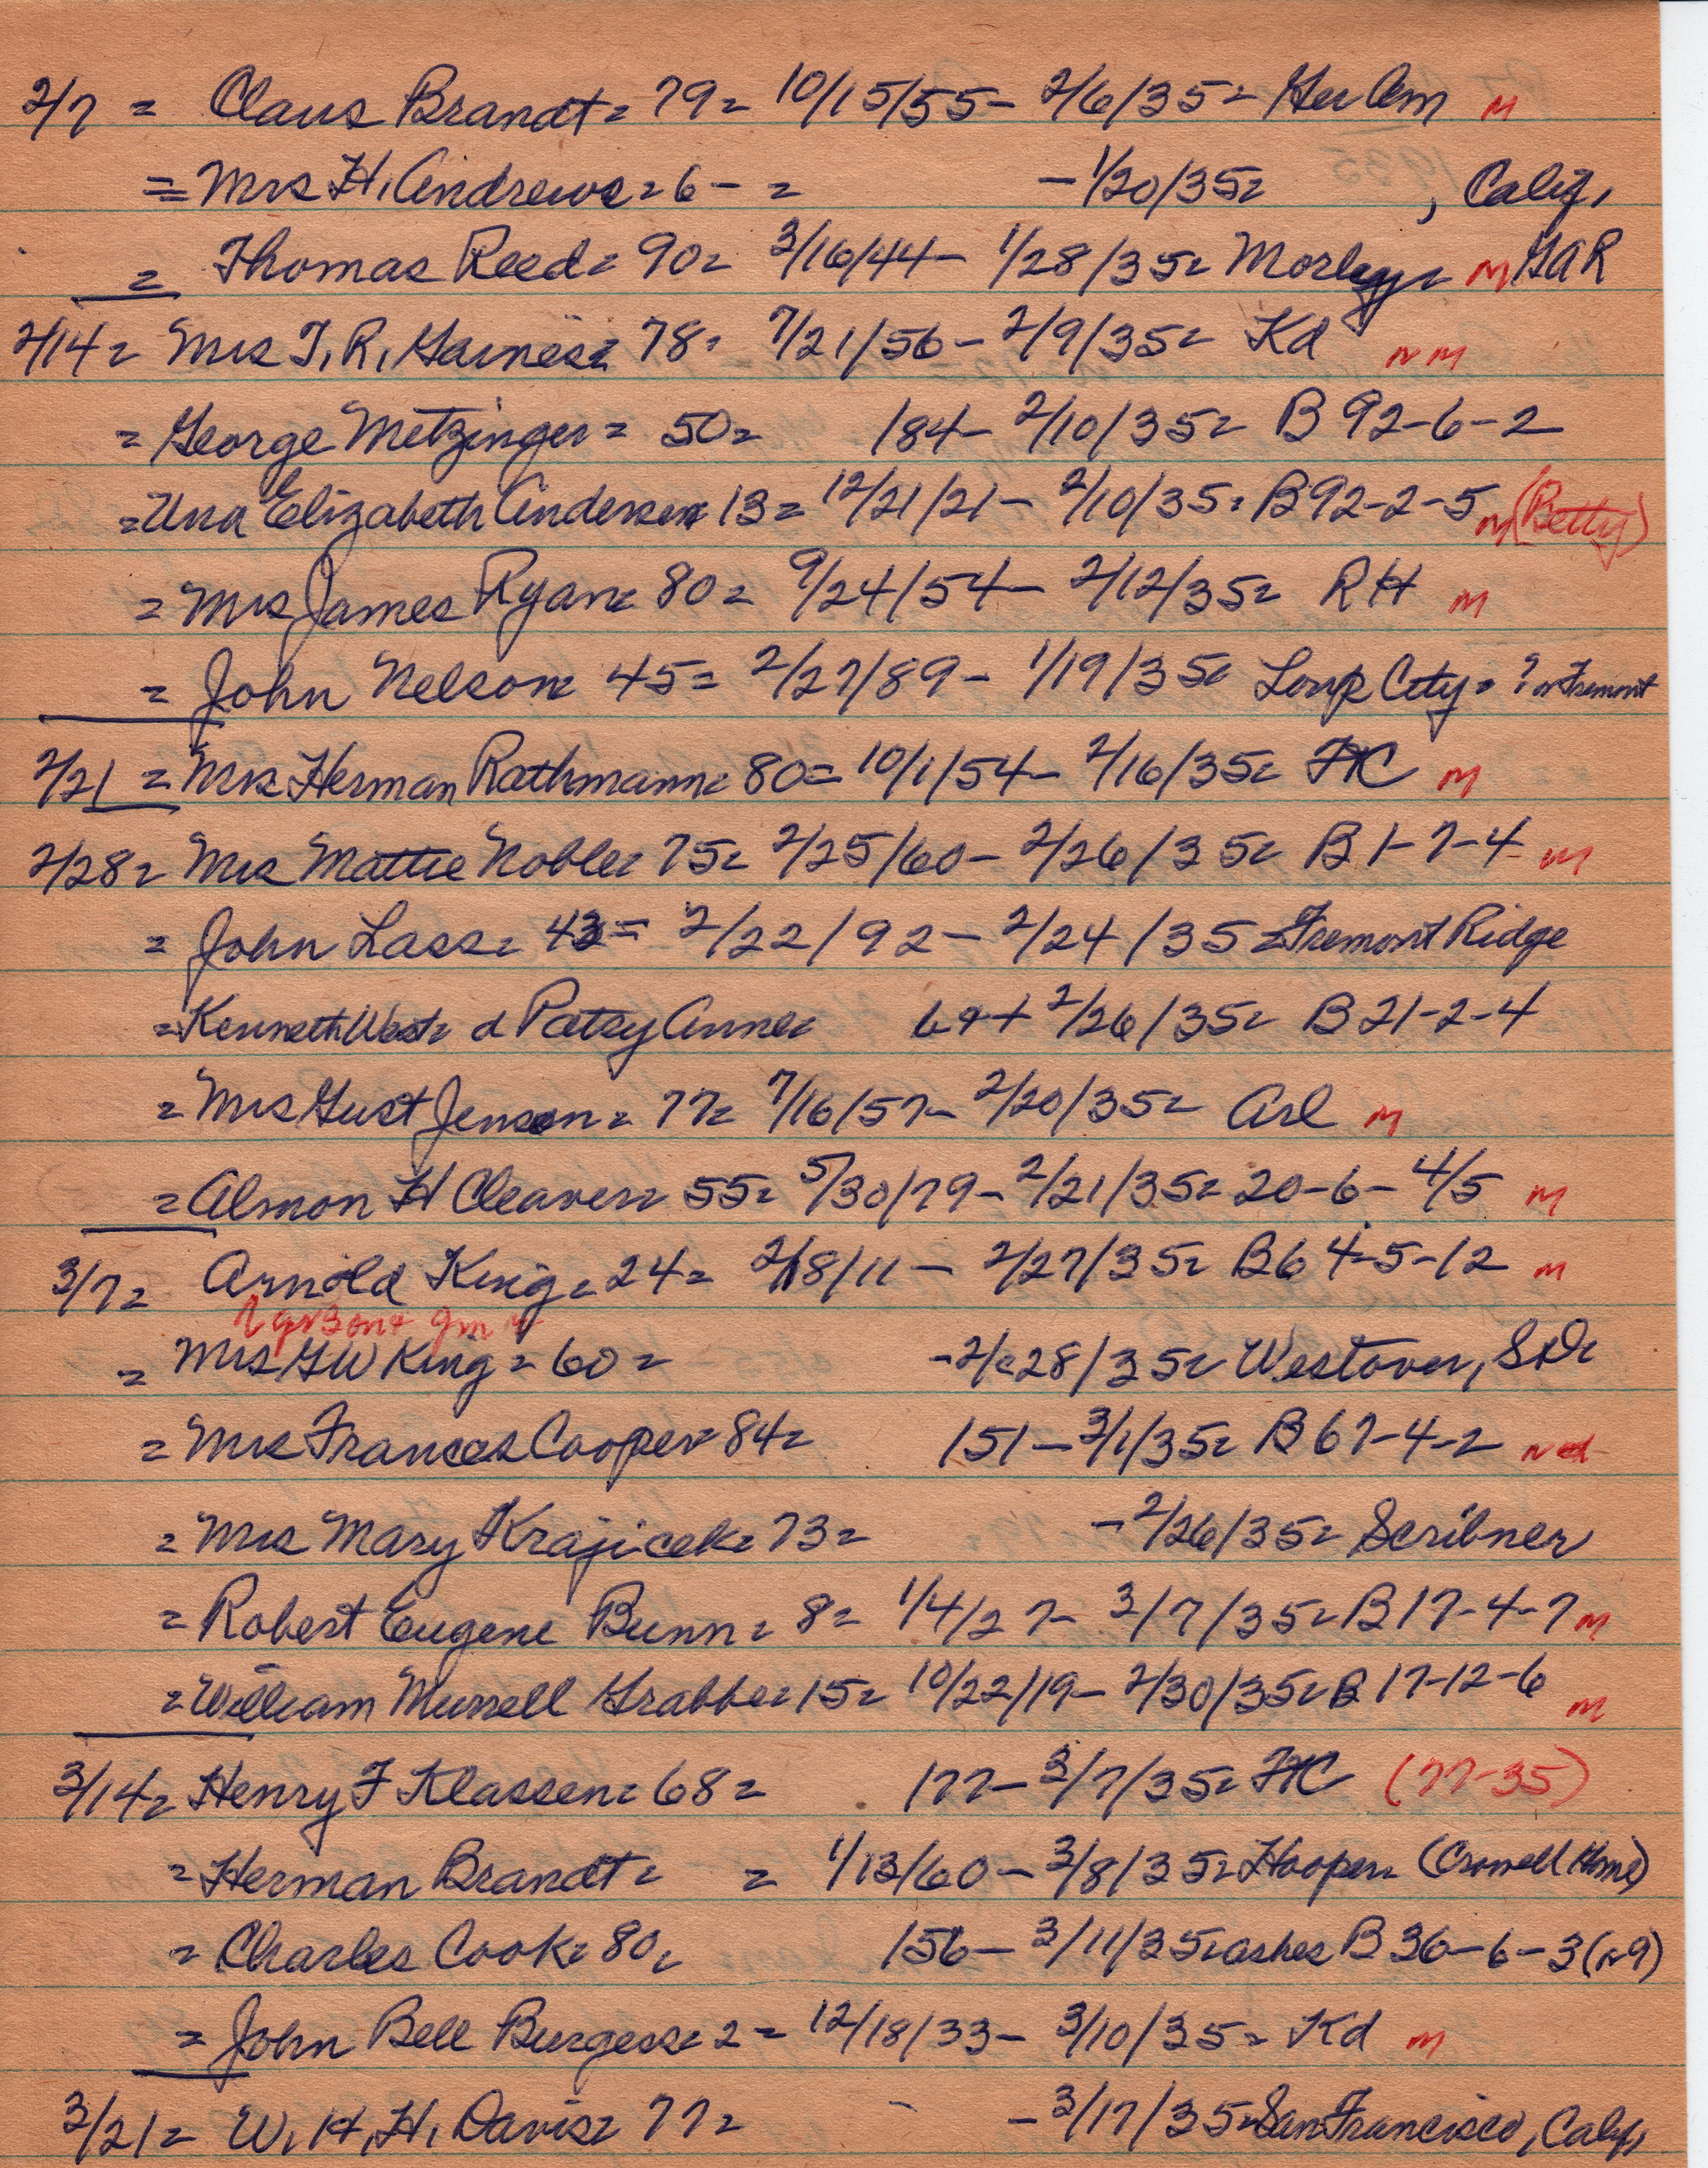 2/7 = Claus Brandt = 79 = 10/15/55 - 2/6/35 = Ger Cem M
= Mrs H. Andrews = 6- = - 1/20/35 = , Calif,
= Thomas Reed = 90 = 3/16/44 - 1/28/35 = Morley = M GAR
2/14 = Mrs T. R. Gaines = 78 = 7/21/56 - 2/9/35 = Kd NM
= George Metzinger = 50 = 184- 2/10/35 = B 92-6-2
= Una Elizabeth Andersen 13 = 12/21/21 - 2/10/35 = B92-2-5 M (Betty)
= Mrs James Ryan = 80 = 9/24/54 - 2/12/35 = RH M
= John Nelson = 45 = 2/27/89 - 1/19/35 = Loup City = ? or Fremont
2/21 = Mrs Herman Rathmann = 80 = 10/1/54 - 2/16/35 = FC M
2/28 = Mrs Mattie Noble = 75 = 2/25/60 - 2/26/35 = B 1-7-4 M
= John Lass = 43 = 2/22/92 - 2/24/35 = Fremont Ridge
= Kenneth West = d Patsy Anne = 2/26/35 = B 21-2-4
= Mrs Gust Jenson = 77 = 7/16/57 - 2/20/35 = Arl M
= Almon H Cleaver = 55 = 5/30/79 - 2/21/35 = 20-6-4/5 M
3/7 = Arnold King = 24 = 2/18/11 - 2/27/35 = B64-5-12 M
= Mrs GW King = 60 = - 2/28/35 = Westover, SD
= Mrs Frances Cooper = 84 = 151 - 3/1/35 = B 67-4-2
= Mrs Mary Krajicek = 73 = - 2/26/35 = Scribner
= Robert Eugene Bunn = 8 = 1/4/27 - 3/7/35 = B 17-4-7 M
= William Murrell Grabbe = 15 = 10/22/19 - 2/30/35 = B 17-12-6 M
3/14 = Henry F Klassen = 68 = 177 - 3/7/35 = FC (77-35)
= Herman Brandt = = 1/13/60 - 3/8/35 = Hooper = (Crowell Home)
= Charles Cook = 80 = 156 - 3/11/35 = ashes B 36-6-3 (n9)
= John Bell Burgess = 2 = 12/18/33 - 3/10/35 = Kd M
3/21 = W. H. H. Davis = 77 = - 3/17/35 = San Francisco, Calif,